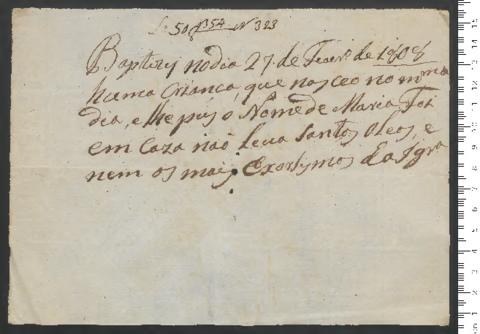 L. 50 f 354 N 323
Baptizej no dia 27 de Fever.o de 1808
huma Crianca, que nasceo no mmo
dia, e lhe pus o Nome de Maria Foi
em Caza naõ leva Santos Oleos, e
nem os mais Exorsymos da Igra